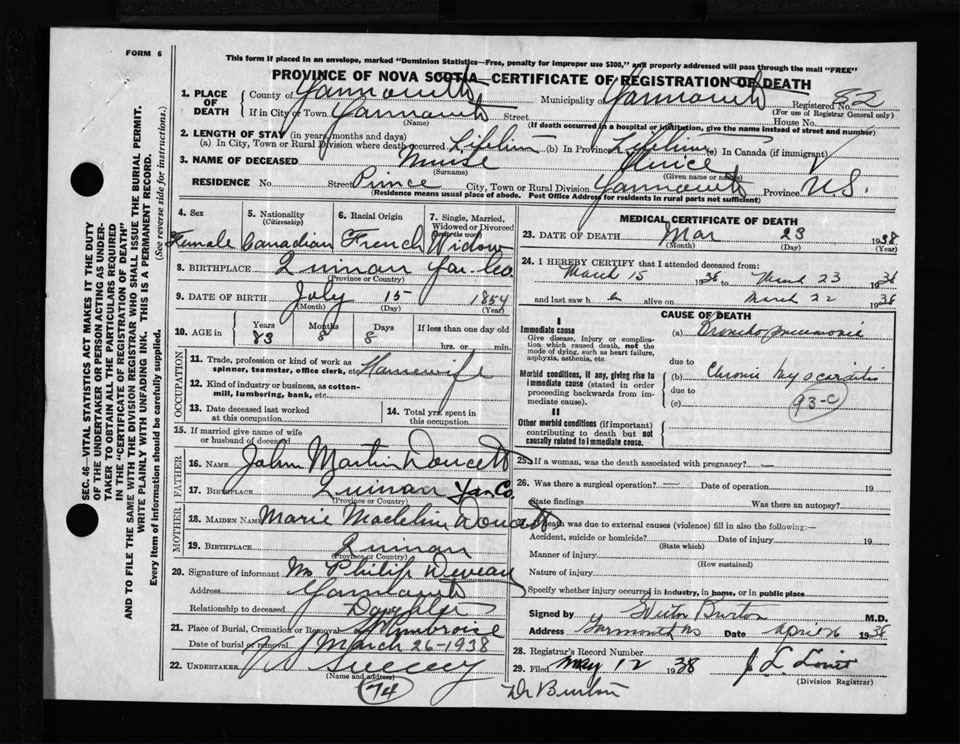 FORM 6
This form if placed in an envelope, marked "Dominion Statistics—Free, penalty for improper use $300," and properly addressed will pass through the mail "FREE"
PROVINCE OF NOVA SCOTIA—CERTIFICATE OF REGISTRATION OF DEATH
1. PLACE OF DEATH
County of Yarmouth Municipality of Yarmouth Registered No. 82
(For use of Registrar General only)
If in City or Town Yarmouth Street House No.
(Name) (If death occurred in a hospital or institution, give the name instead of street and number)
2. LENGTH OF STAY (in years, months and days)
(a) In City, Town or Rural Division where death occurred Lifetime (b) In Province Lifetime (c) In Canada (if immigrant)
3. NAME OF DECEASED Muise
(Surname) (Given name or names)
RESIDENCE No. Street Prince City, Town or Rural Division Yarmouth Province N.S.
(Residence means usual place of abode. Post Office Address for residents in rural parts not sufficient)
4. Sex 5. Nationality (Citizenship) 6. Racial Origin 7. Single, Married, Widowed or Divorced (write the word)
Female Canadian French Widow
8. BIRTHPLACE Quinan Yar. Co.
(Province or Country)
9. DATE OF BIRTH July 15 1854
(Month) (Day) (Year)
10. AGE in Years Months Days If less than one day old
83 8 8 hrs. or min.
OCCUPATION
11. Trade, profession or kind of work as spinner, teamster, office clerk, etc. Housewife
12. Kind of industry or business, as cotton-mill, lumbering, bank, etc.
13. Date deceased last worked at this occupation
14. Total yrs. spent in this occupation
15. If married give name of wife or husband of deceased
FATHER
16. NAME John Martin Doucett
17. BIRTHPLACE Quinan Yar Co.
(Province or Country)
MOTHER
18. MAIDEN NAME Marie Madeline Doucett
19. BIRTHPLACE Quinan
(Province or Country)
20. Signature of informant Mrs Philip Deveau
Address Yarmouth
Relationship to deceased Daughter
21. Place of Burial, Cremation or Removal St Ambroise
Date of burial or removal March 26-1938
22. UNDERTAKER Sweeny
(Name and address)
74
MEDICAL CERTIFICATE OF DEATH
23. DATE OF DEATH Mar 23 1938
(Month) (Day) (Year)
24. I HEREBY CERTIFY that I attended deceased from:
March 15 1938 to March 23 1938
and last saw h er alive on March 22 1938
CAUSE OF DEATH
I
Immediate cause (a) Broncho pneumonia
Give disease, injury or complication which caused death, not the mode of dying, such as heart failure, asphyxia, asthenia, etc.
due to
Morbid conditions, if any, giving rise to immediate cause (stated in order proceeding backwards from immediate cause).
(b) Chronic Myocarditis
due to
(c) 93-C
II
Other morbid conditions (if important) contributing to death but not causally related to immediate cause.
25. If a woman, was the death associated with pregnancy?
26. Was there a surgical operation? Date of operation 19
State findings Was there an autopsy?
27. If death was due to external causes (violence) fill in also the following:
Accident, suicide or homicide? Date of injury 19
(State which)
Manner of injury
(How sustained)
Nature of injury
Specify whether injury occurred in industry, in home, or in public place
Signed by Burton M.D.
Address Yarmouth NS Date April 26 1938
28. Registrar's Record Number
29. Filed May 12 1938
(Division Registrar)
Dr Burton
SEC. 46—VITAL STATISTICS ACT MAKES IT THE DUTY
OF THE UNDERTAKER OR PERSON ACTING AS UNDER-
TAKER TO OBTAIN ALL THE PARTICULARS REQUIRED
IN THE "CERTIFICATE OF REGISTRATION OF DEATH"
AND TO FILE THE SAME WITH THE DIVISION REGISTRAR WHO SHALL ISSUE THE BURIAL PERMIT.
WRITE PLAINLY WITH UNFADING INK. THIS IS A PERMANENT RECORD.
Every item of information should be carefully supplied. (See reverse side for instructions.)